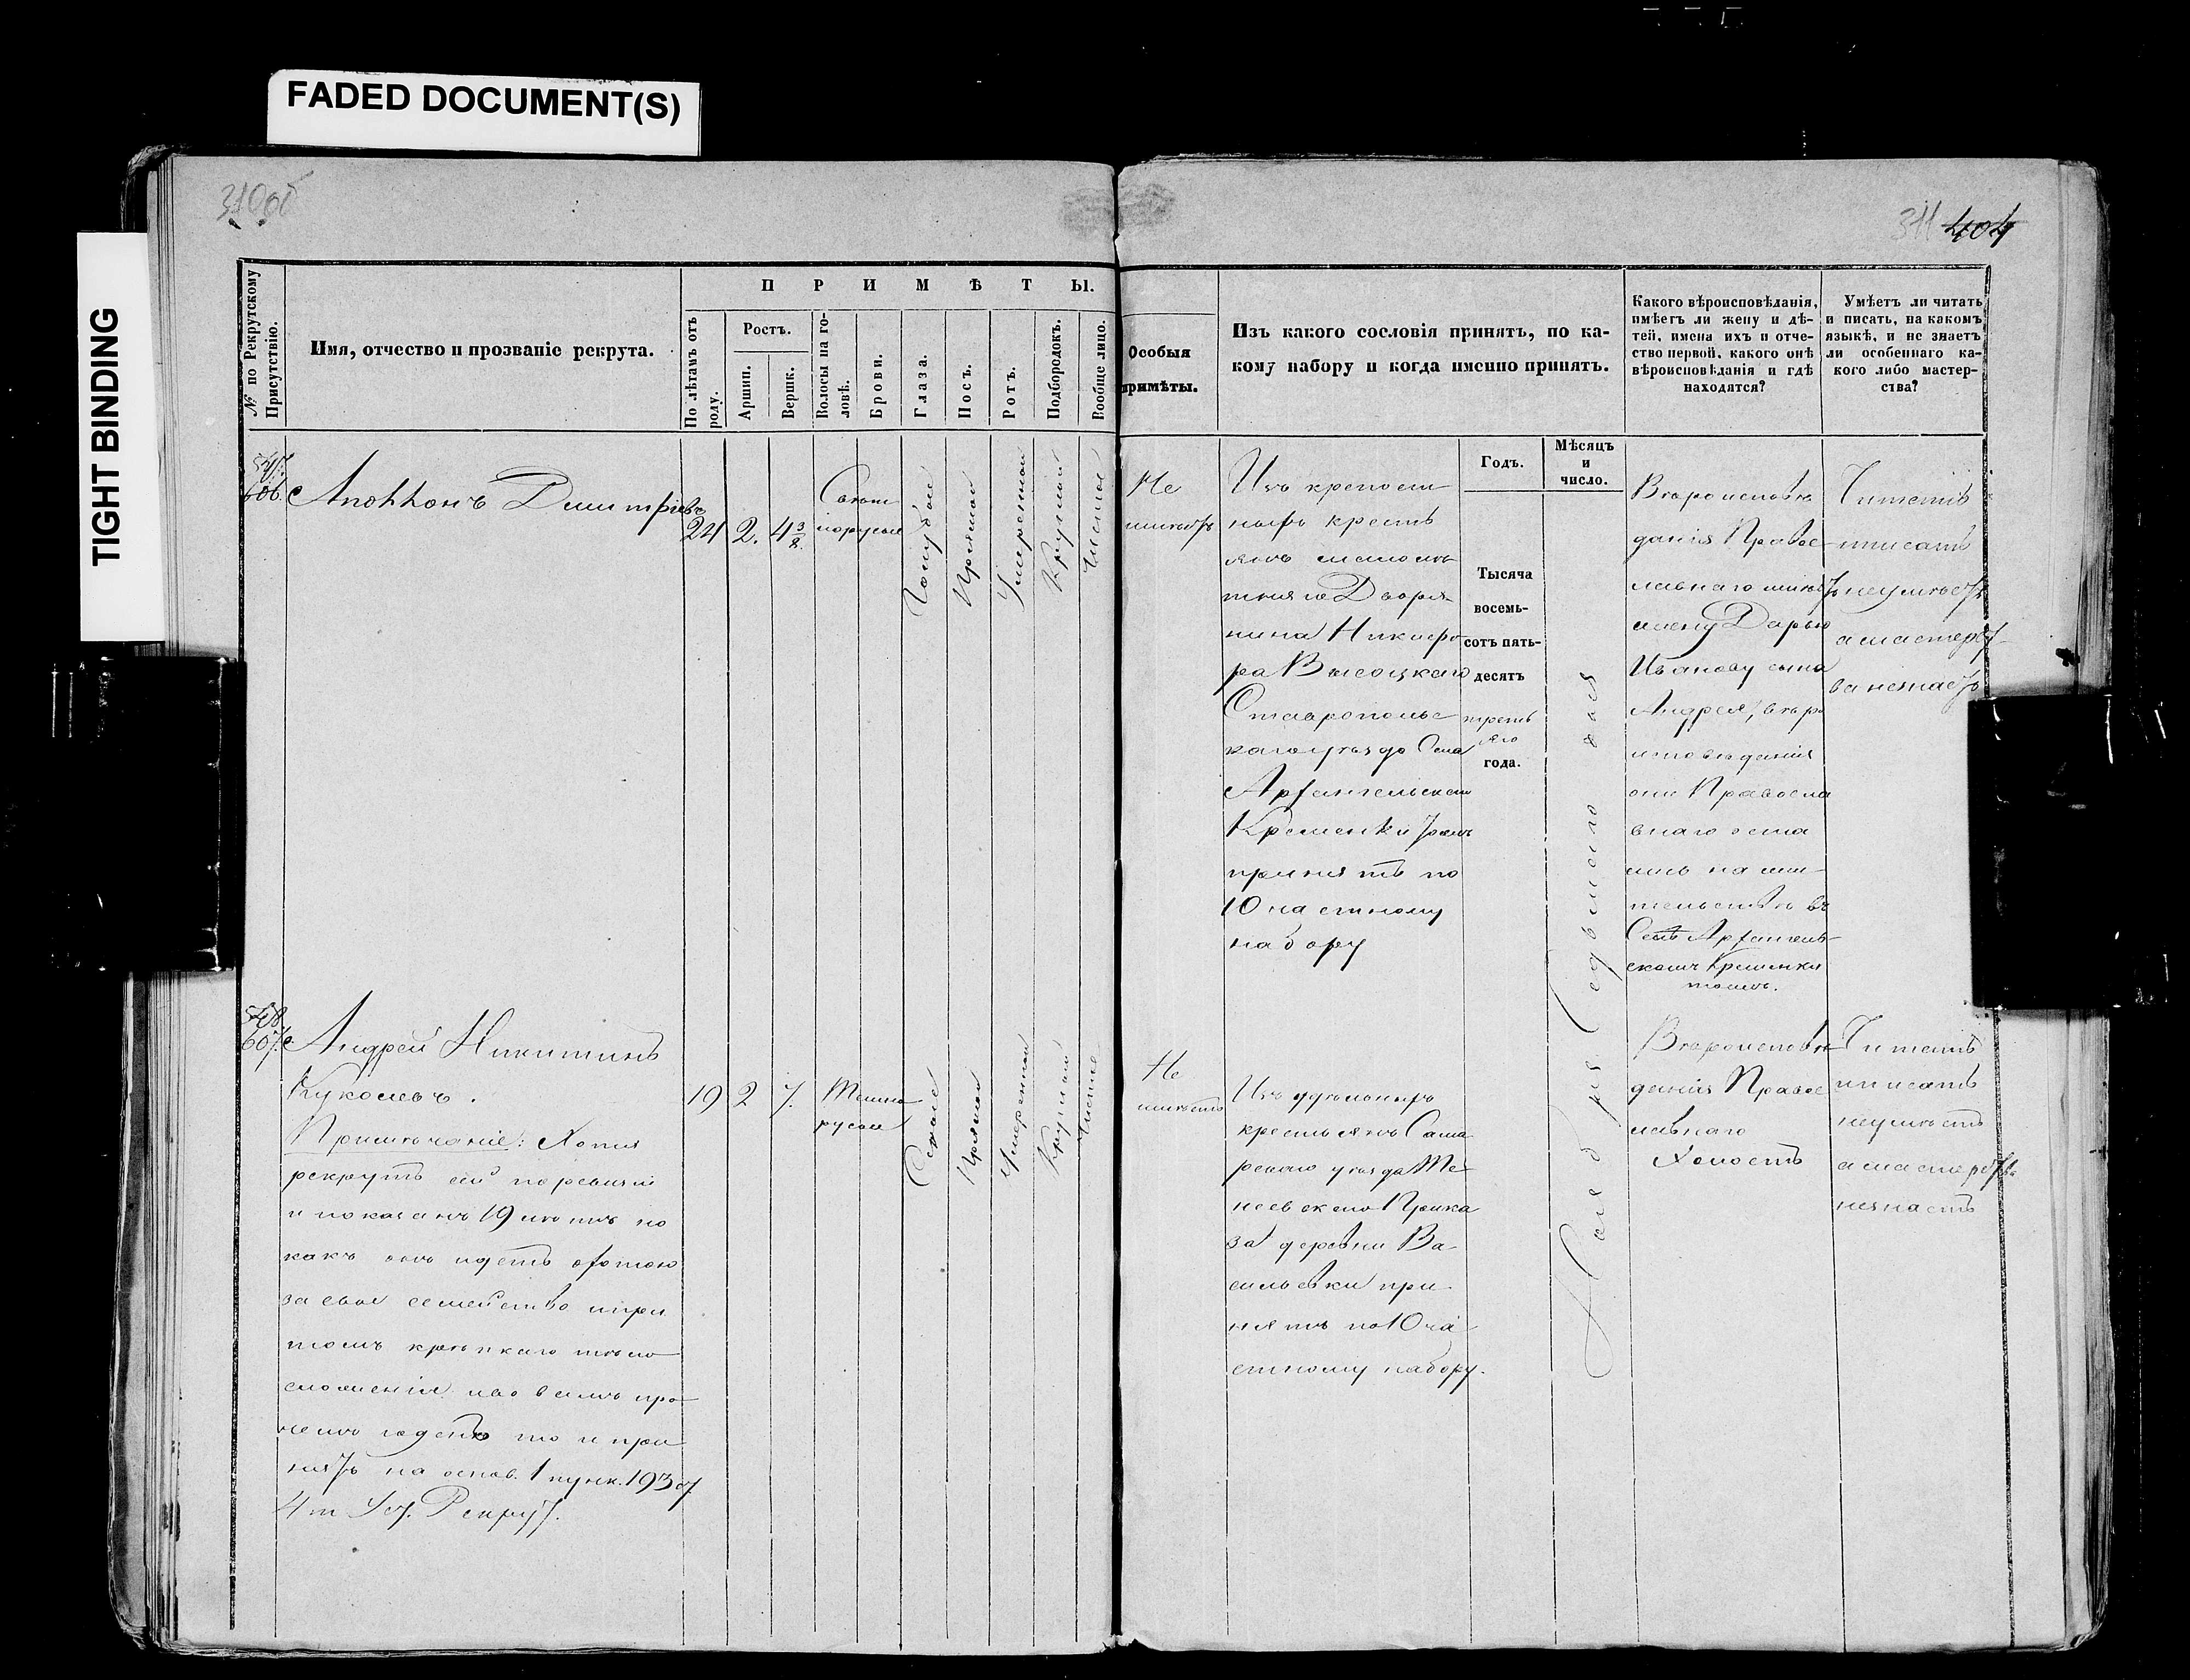 FADED DOCUMENT(S)
TIGHT BINDING
310об
311 404
№ по Рекрутскому Присутствію.
Имя, отчество и прозваніе рекрута.
ПРИМѢТЫ.
По лѣтамъ отъ роду.
Ростъ.
Аршин.
Вершк.
Волосы на головѣ.
Брови.
Глаза.
Носъ.
Ротъ.
Подбородокъ.
Вообще лицо.
Особыя
примѣты.
Изъ какого сословія принятъ, по ка-
кому набору и когда именно принятъ.
Какого вѣроисповѣданія,
имѣетъ ли жену и дѣ-
тей, имена ихъ и отче-
ство первой, какого онѣ
вѣроисповѣданія и гдѣ
находятся?
Умѣетъ ли читать
и писать, на какомъ
языкѣ, и не знаетъ
ли особеннаго ка-
кого либо мастер-
ства?
Годъ.
Мѣсяцъ
и
число.
606.
Дмитріевъ
24 2. 4 3/8.
Свѣтло
русые
Голубые
Прямой
Умѣренной
Круглой
Чистое
Не
имѣетъ
Изъ крепост
ныхъ кресть
янъ
Дворя
нина Никифо
ра Высоцкаго
Ставрополь
скаго уѣзда Села
Архангельскаго
Кременки тожъ
принятъ по
10 частному
набору
Тысяча
восемь-
сотъ пять-
десятъ
треть
яго
года.
Ноября Седьмаго дня
Вѣроисповѣ
данія Правос
лавнаго имѣетъ
жену Дарью
Иванову сына
Андрея, вѣро
исповѣданія
они Правосла
внаго оста
лись на жи
тельствѣ въ
Селѣ Архангель
скомъ Кременки
тожъ.
Читать
писать
неумѣетъ
а мастерст
ва незнаетъ
607.
Андрей Никитинъ
Куколевъ.
19 2 7.
Темно
русые
Сѣрые
Прямой
Умеренной
Круглой
Чистое
Примѣчаніе: Хотя
рекрутъ сей по ревизіи
и показанъ 19 лѣтъ но
какъ онъ идетъ охотою
за свое семейство и при
томъ крѣпкаго тѣло
сложенія и во всемъ про
чемъ годенъ то и при
нятъ на основ. 1 пунк. 193 ст.
4 т Уст. Рекрут.
Не
имѣетъ
Изъ удѣльныхъ
крестьянъ Сама
рскаго уѣзда Те
неевскаго Прика
за деревни Ва
сильевки при
нятъ по 10 ча
стному набору.
Вѣроисповѣ
данія Правос
лавнаго
Холостъ
Читать
писать
неумѣетъ
а мастерства
незнаетъ